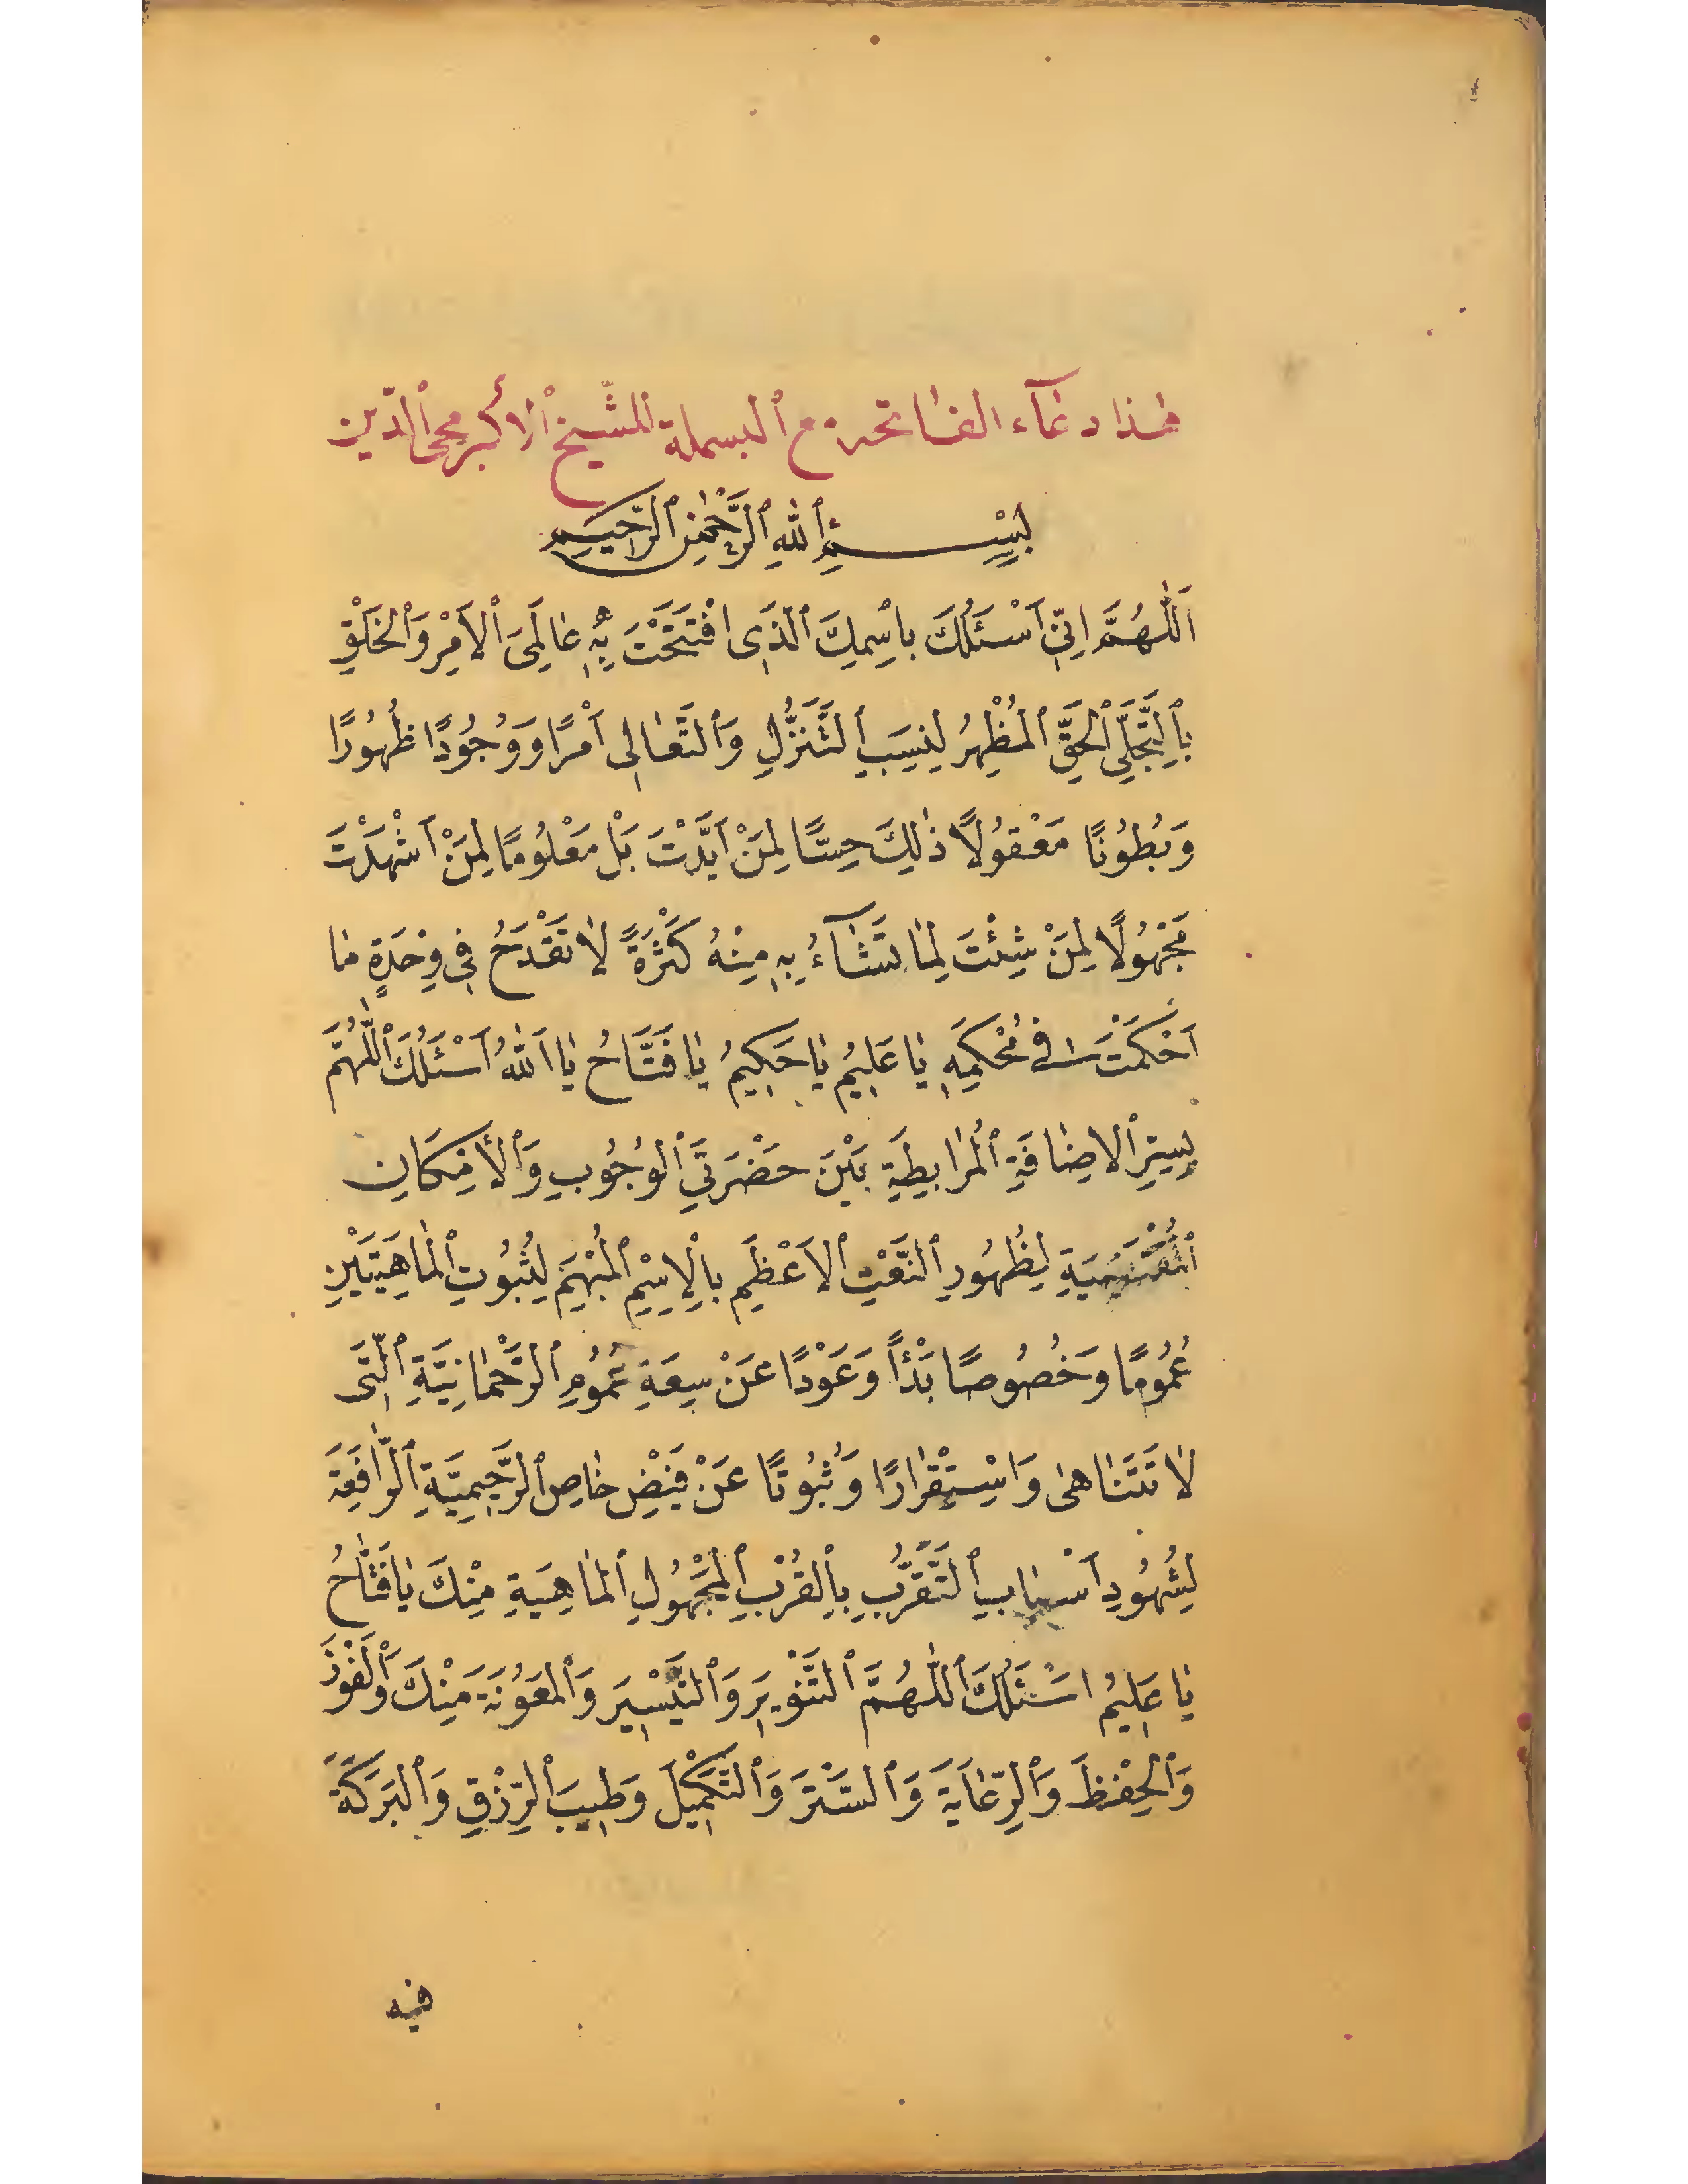 هذا دعآء الفاتحه مع البسملة للشّيخ الأكبر محى الدّين
بِسْمِ اللهِ الرَّحْمٰنِ الرَّحِيمِ
اَللّٰهُمَّ اِنّى اَسْئَلُكَ بِاسْمِكَ الَّذِى افْتَتَحْتَ بِهِ عَالَمَىِ الْاَمْرِ وَالْخَلْقِ
بِالتَّجَلِّى الْحَقِّ الْمُظْهِرُ لِنِسَبِ التَّنَزُّلِ وَالتَّعَالِى اَمْرًا وَوُجُودًا ظُهُورًا
وَبُطُونًا مَعْقُولًا ذٰلِكَ حِسًّا لِمَنْ اَيَّدْتَ بَلْ مَعْلُومًا لِمَنْ اَشْهَدْتَ
مَجْهُولًا لِمَنْ شِئْتَ لِمَا تَشَآءُ بِهِ مِنْهُ كَثْرَةً لَا تَقْدَحُ فِى وِحْدَةِ مَا
اَحْكَمْتَ فِى مُحْكَمِهِ يَا عَلِيمُ يَا حَكِيمُ يَا فَتَّاحُ يَا اَللّٰهُ اَسْئَلُكَ اللّٰهُمَّ
بِسِرِّ الْاِضَافَةِ الرَّابِطَةِ بَيْنَ حَضْرَتَىِ الْوُجُوبِ وَالْأِمْكَانِ
لِظُهُورِ النَّعْتِ الْاَعْظَمِ بِالْاِسْمِ الْمُبْهَمِ لِثُبُوتِ الْمَاهِيَتَيْنِ
عُمُومًا وَخُصُوصًا بَدْأً وَعَوْدًا عَنْ سِعَةِ عُمُومِ الرَّحْمَانِيَّةِ الَّتِى
لَا تَتَنَاهٰى وَاسْتِقْرَارًا وَثُبُوتًا عَنْ فَيْضِ خَاصِ الرَّحِيمِيَّةِ الرَّافِعَةِ
لِشُهُودِ اَسْبَابِ التَّقَرُّبِ بِالْقُرْبِ الْمَجْهُولِ الْمَاهِيَةِ مِنْكَ يَا فَتَّاحُ
يَا عَلِيمُ اَسْئَلُكَ اللّٰهُمَّ التَّنْوِيرَ وَالتَّيْسِيرَ وَالْمَعُونَةَ مِنْكَ وَالْفَوْزَ
وَالْحِفْظَ وَالرِّعَايَةَ وَالسَّتْرَ وَالتَّكْمِيلَ وَطِيبَ الرِّزْقِ وَالْبَرَكَةَ
فيه